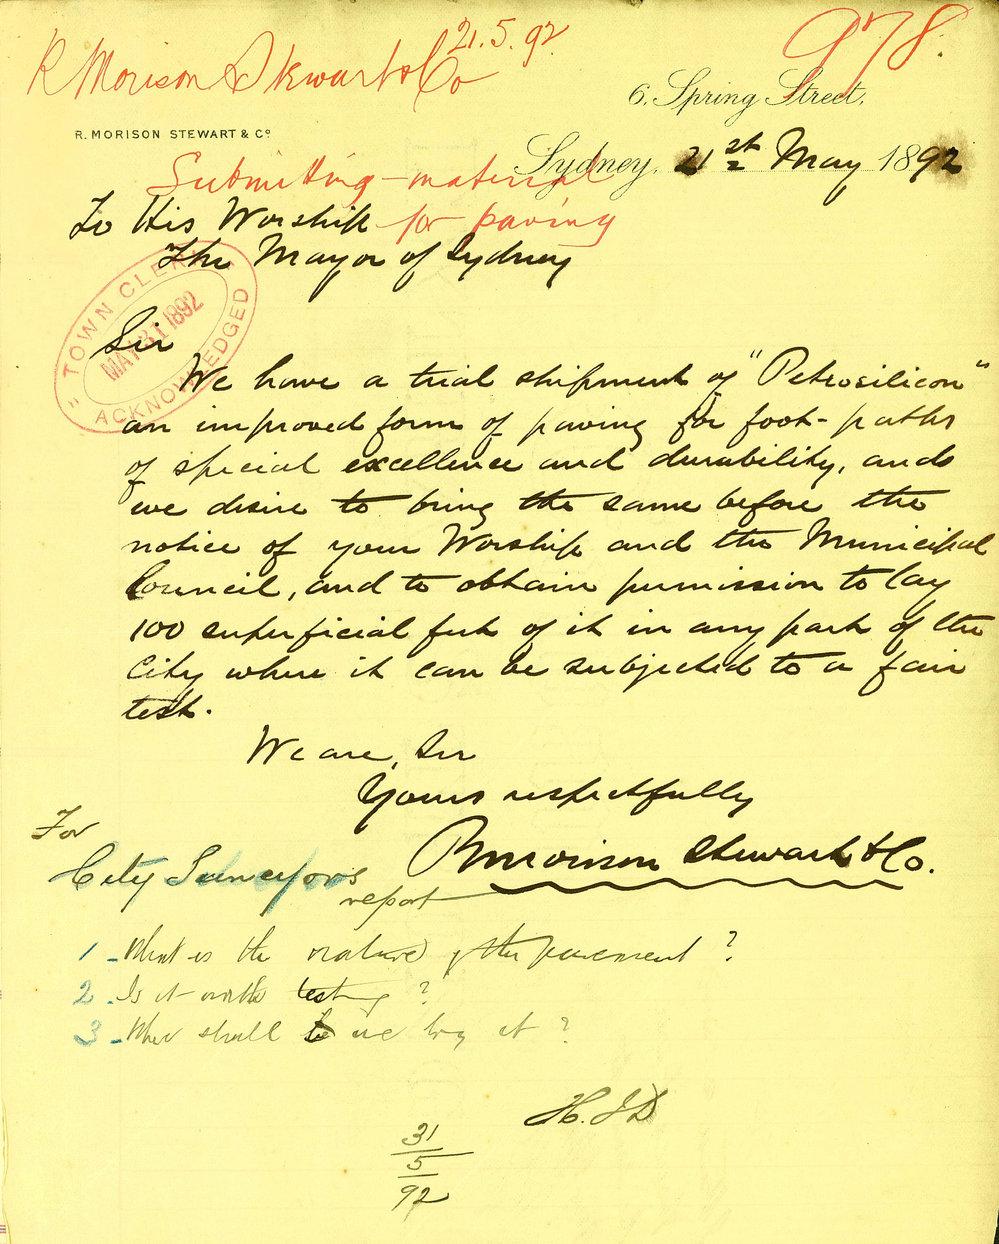 R Morison Stewart & Co
21.5.92
978.
6, Spring Street,
R. MORISON STEWART & Co
Sydney, 21st May 1892
Submitting material
for paving
To His Worship
The Mayor of Sydney
TOWN CLERK
MAY 31 1892
ACKNOWLEDGED
Sir
We have a trial shipment of "Petrosilicon"
an improved form of paving for foot-paths
of special excellence and durability, and
we desire to bring the same before the
notice of your Worship and the Municipal
Council, and to obtain permission to lay
100 superficial feet of it in any part of the
City where it can be subjected to a fair
test.
We are, Sir
Yours respectfully
R Morison Stewart & Co.
For
City Surveyors
report
1 - What is the nature of the pavement?
2 - Is it worth testing?
3 - Where shall we try it?
H.J.D
31
5
92